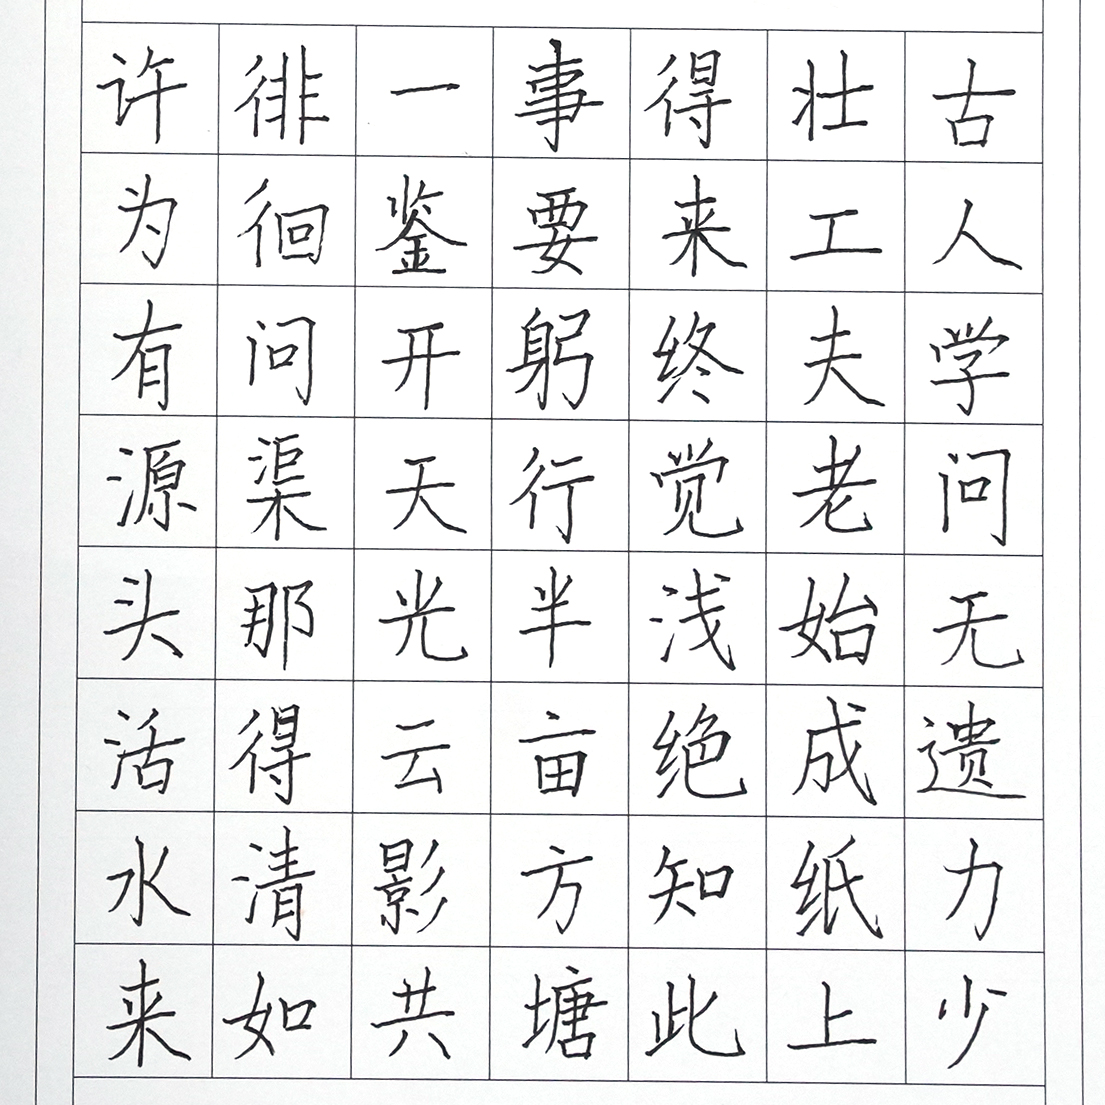 古人学问无遗力少
壮工夫老始成纸上
得来终觉浅绝知此
事要躬行半亩方塘
一鉴开天光云影共
徘徊问渠那得清如
许为有源头活水来